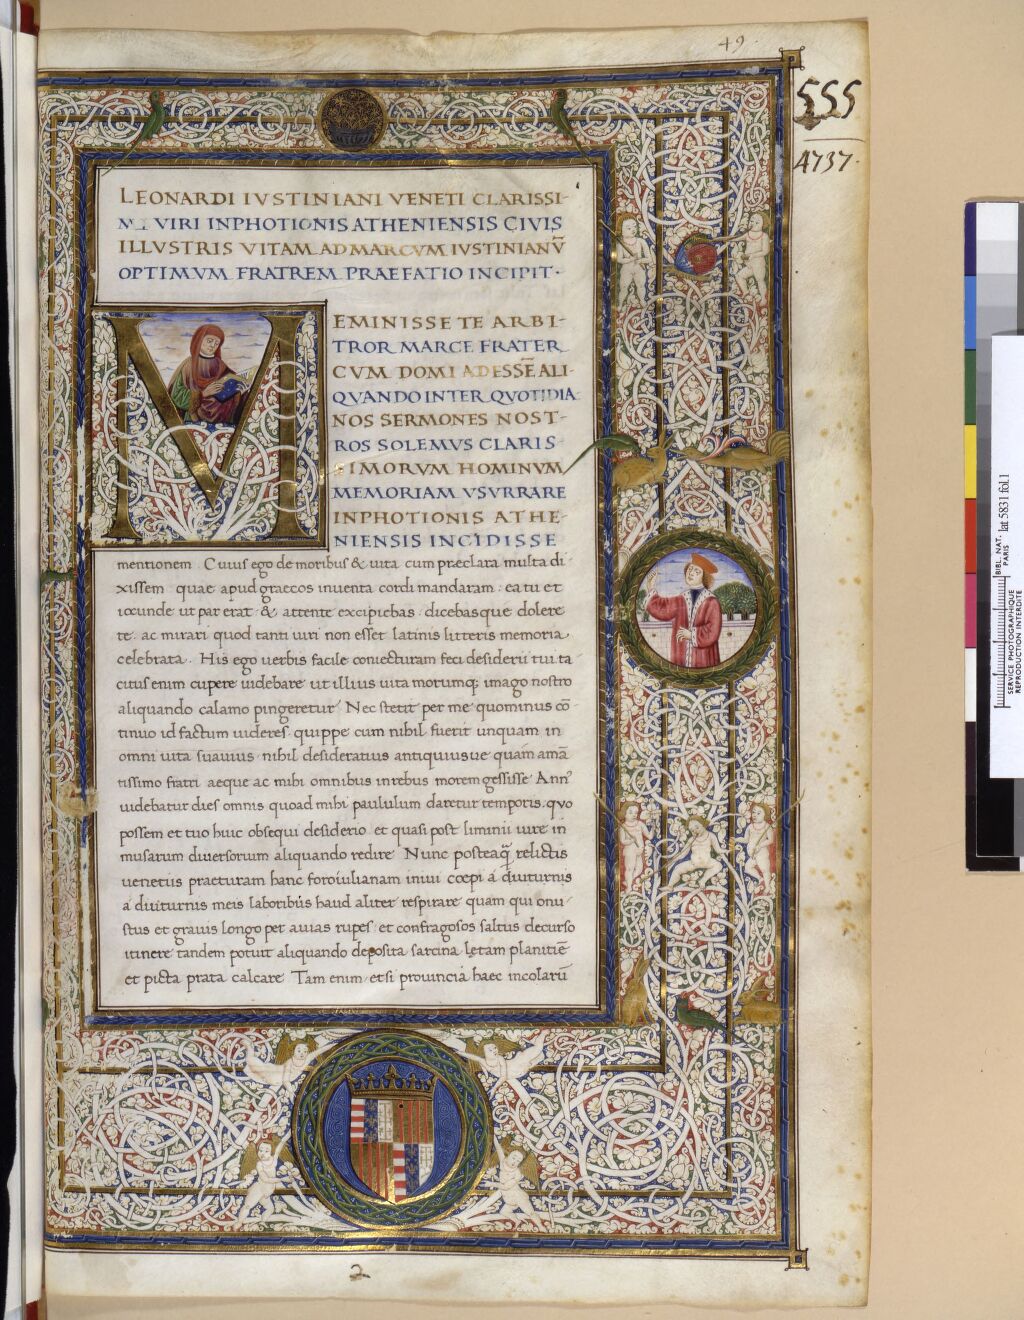 49.
555
4737.
LEONARDI IVSTINIANI VENETI CLARISSI-
VIRI INPHOTIONIS ATHENIENSIS CIVIS
ILLVSTRIS VITAM AD MARCVM IVSTINIANV̄
OPTIMVM FRATREM PRAEFATIO INCIPIT·
MEMINISSE TE ARBI-
TROR MARCE FRATER
CVM DOMI ADESSĒ ALI-
QVANDO INTER QVOTIDIA
NOS SERMONES NOST-
ROS SOLEMVS CLARIS-
SIMORVM HOMINVM
MEMORIAM VSVRRARE
INPHOTIONIS ATHE
NIENSIS INCIDISSE
mentionem. Cuius ego de moribus & uita cum præclara multa di-
xissem quae apud graecos inuenta cordi mandaram: ea tu et
iocunde ut par erat & attente excipiebas: dicebasque dolere
te ac mirari quod tanti uiri non esset latinis litteris memoria
celebrata. His ego uerbis facile coniecturam feci desiderii tui ta
cuius enim cupere uidebare ut illius uita morumq; imago nostro
aliquando calamo pingeretur. Nec stetit per me quominus cō
tinuo id factum uideres. quippe cum nihil fuerit unquam in
omni uita suauius nihil desideratius antiquiusue quam amā
tissimo fratri aeque ac mihi omnibus in rebus morem gessisse.
uidebatur dies omnis quoad mihi paululum daretur temporis quo
possem et tuo huic obsequi desiderio et quasi post liminii iure in
musarum diuersorum aliquando redire. Nunc posteaq̄ relictis
uenetiis praeturam hanc foroiulianam iniui cœpi á diuturnis
á diuturnis meis laboribus haud aliter respirare quam qui onu-
stus et grauis longo per auias rupes et confragosos saltus decurso
itinere tandem potuit aliquando deposita sarcina letam planitiē
et picta prata calcare. Tam enim etsi prouincia haec incolarū
2
BIBL. NAT. PARIS
lat 5831 fol.1
SERVICE PHOTOGRAPHIQUE
REPRODUCTION INTERDITE